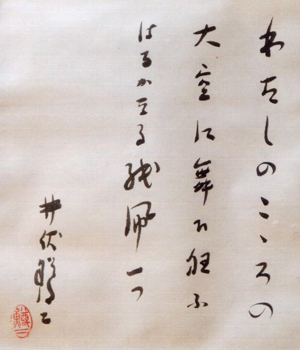 わたしのこゝろの
大空に舞ひ狂ふ
はるかなる紙凧一つ
井伏鱒二
鱒二